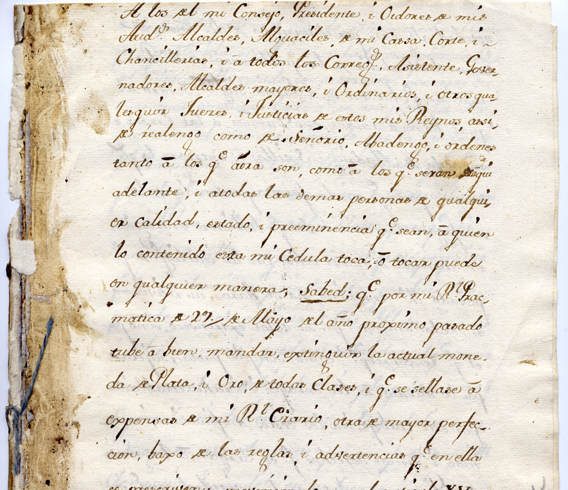 A los del mi Consejo, Presidente, i Oidores de mis
Aud.s Alcaldes, Alguaciles de mi Cassa, Corte, i
Chancillerias, i a todos los Correg.s, Asistente, Gover-
nadores, Alcaldes mayores, i Ordinarios, i otros qua-
lesquier Jueces, i Justicias de estos mis Reynos, assi
de realengo como de Señorio, Abadengo, i ordenes
tanto à los q.e aora son, como à los q.e seran de aqui
adelante, i atodas las demas personas de qualqui-
er calidad, estado, i preeminencia q.e sean, à quien
lo contenido esta mi Cedula toca, ò tocar puede
en qualquier manera; Sabed; q.e por mi R.l Prac-
matica de 22 de Mayo del año proximo pasado
tube à bien, mandar, extinguir la actual mone-
da de Plata, i Oro, de todas Clases, i q.e se sellase à
expensas de mi R.l Erario, otra de mayor perfec-
cion, baxo de las reglas, i advertencias q.e en ella